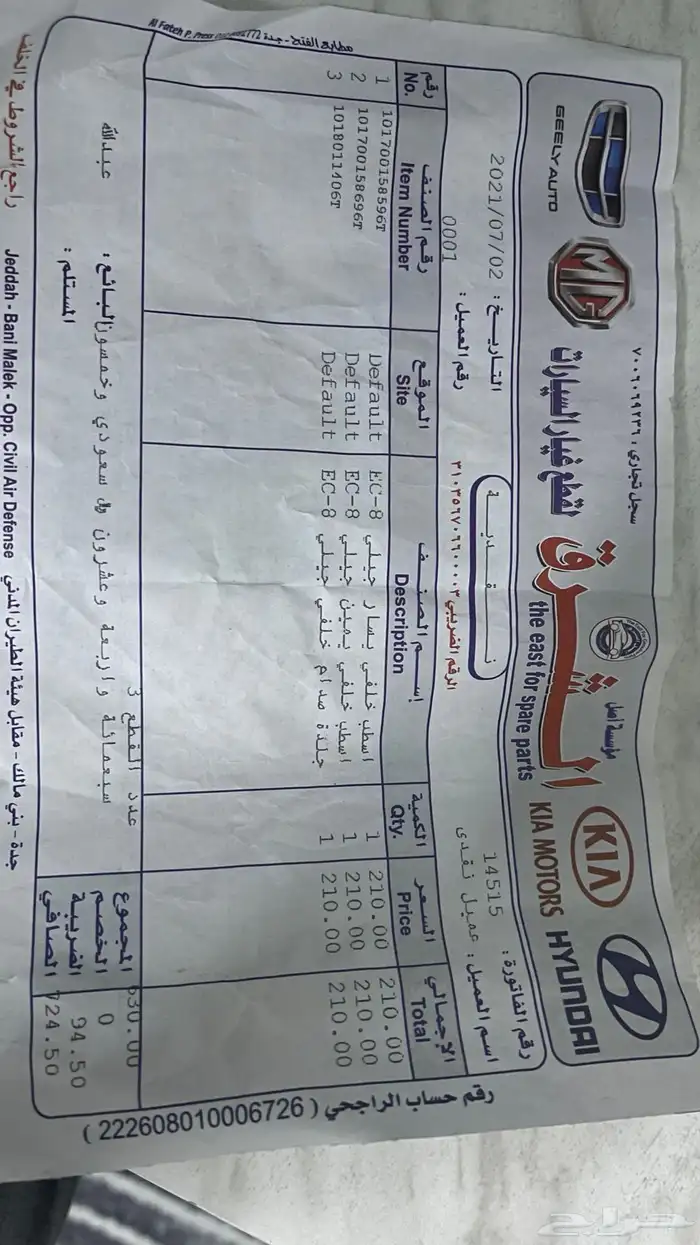 سجل تجاري : ٧٠٠٦٠٦٩٢٣٦
مؤسسة أصل
GEELY AUTO
MG
الشرق لقطع غيار السيارات
the east for spare parts
KIA
KIA MOTORS
HYUNDAI
التاريخ : 2021/07/02
نقدية
رقم الفاتورة : 14515
رقم العميل : 0001
الرقم الضريبي ٣١٠٣٥٦٧٠٩٦٠٠٠٠٣
اسم العميل : عميل نقدى
رقم No. رقم الصنف Item Number الموقع Site إسم الصنف Description الكمية Qty. السعر Price الإجمالي Total
1 101700158596T Default EC-8 اسطب خلفي يسار جيلي 1 210.00 210.00
2 101700158696T Default EC-8 اسطب خلفي يمين جيلي 1 210.00 210.00
3 1018011406T Default EC-8 جلدة صدام خلفي جيلي 1 210.00 210.00
عدد القطع 3
سبعمائة و اربعة وعشرون ريال سعودي و خمسون
البائع : عبدالله
المستلم :
المجموع 630.00
الخصم 0
الضريبة 94.50
الصافي 724.50
رقم حساب الراجحي ( 222608010006726 )
مطابع الفتح - جدة
Al Fateh P. Press
راجع الشروط في الخلف
Jeddah - Bani Malek - Opp. Civil Air Defense جدة - بني مالك - مقابل هيئة الطيران المدني
حراج